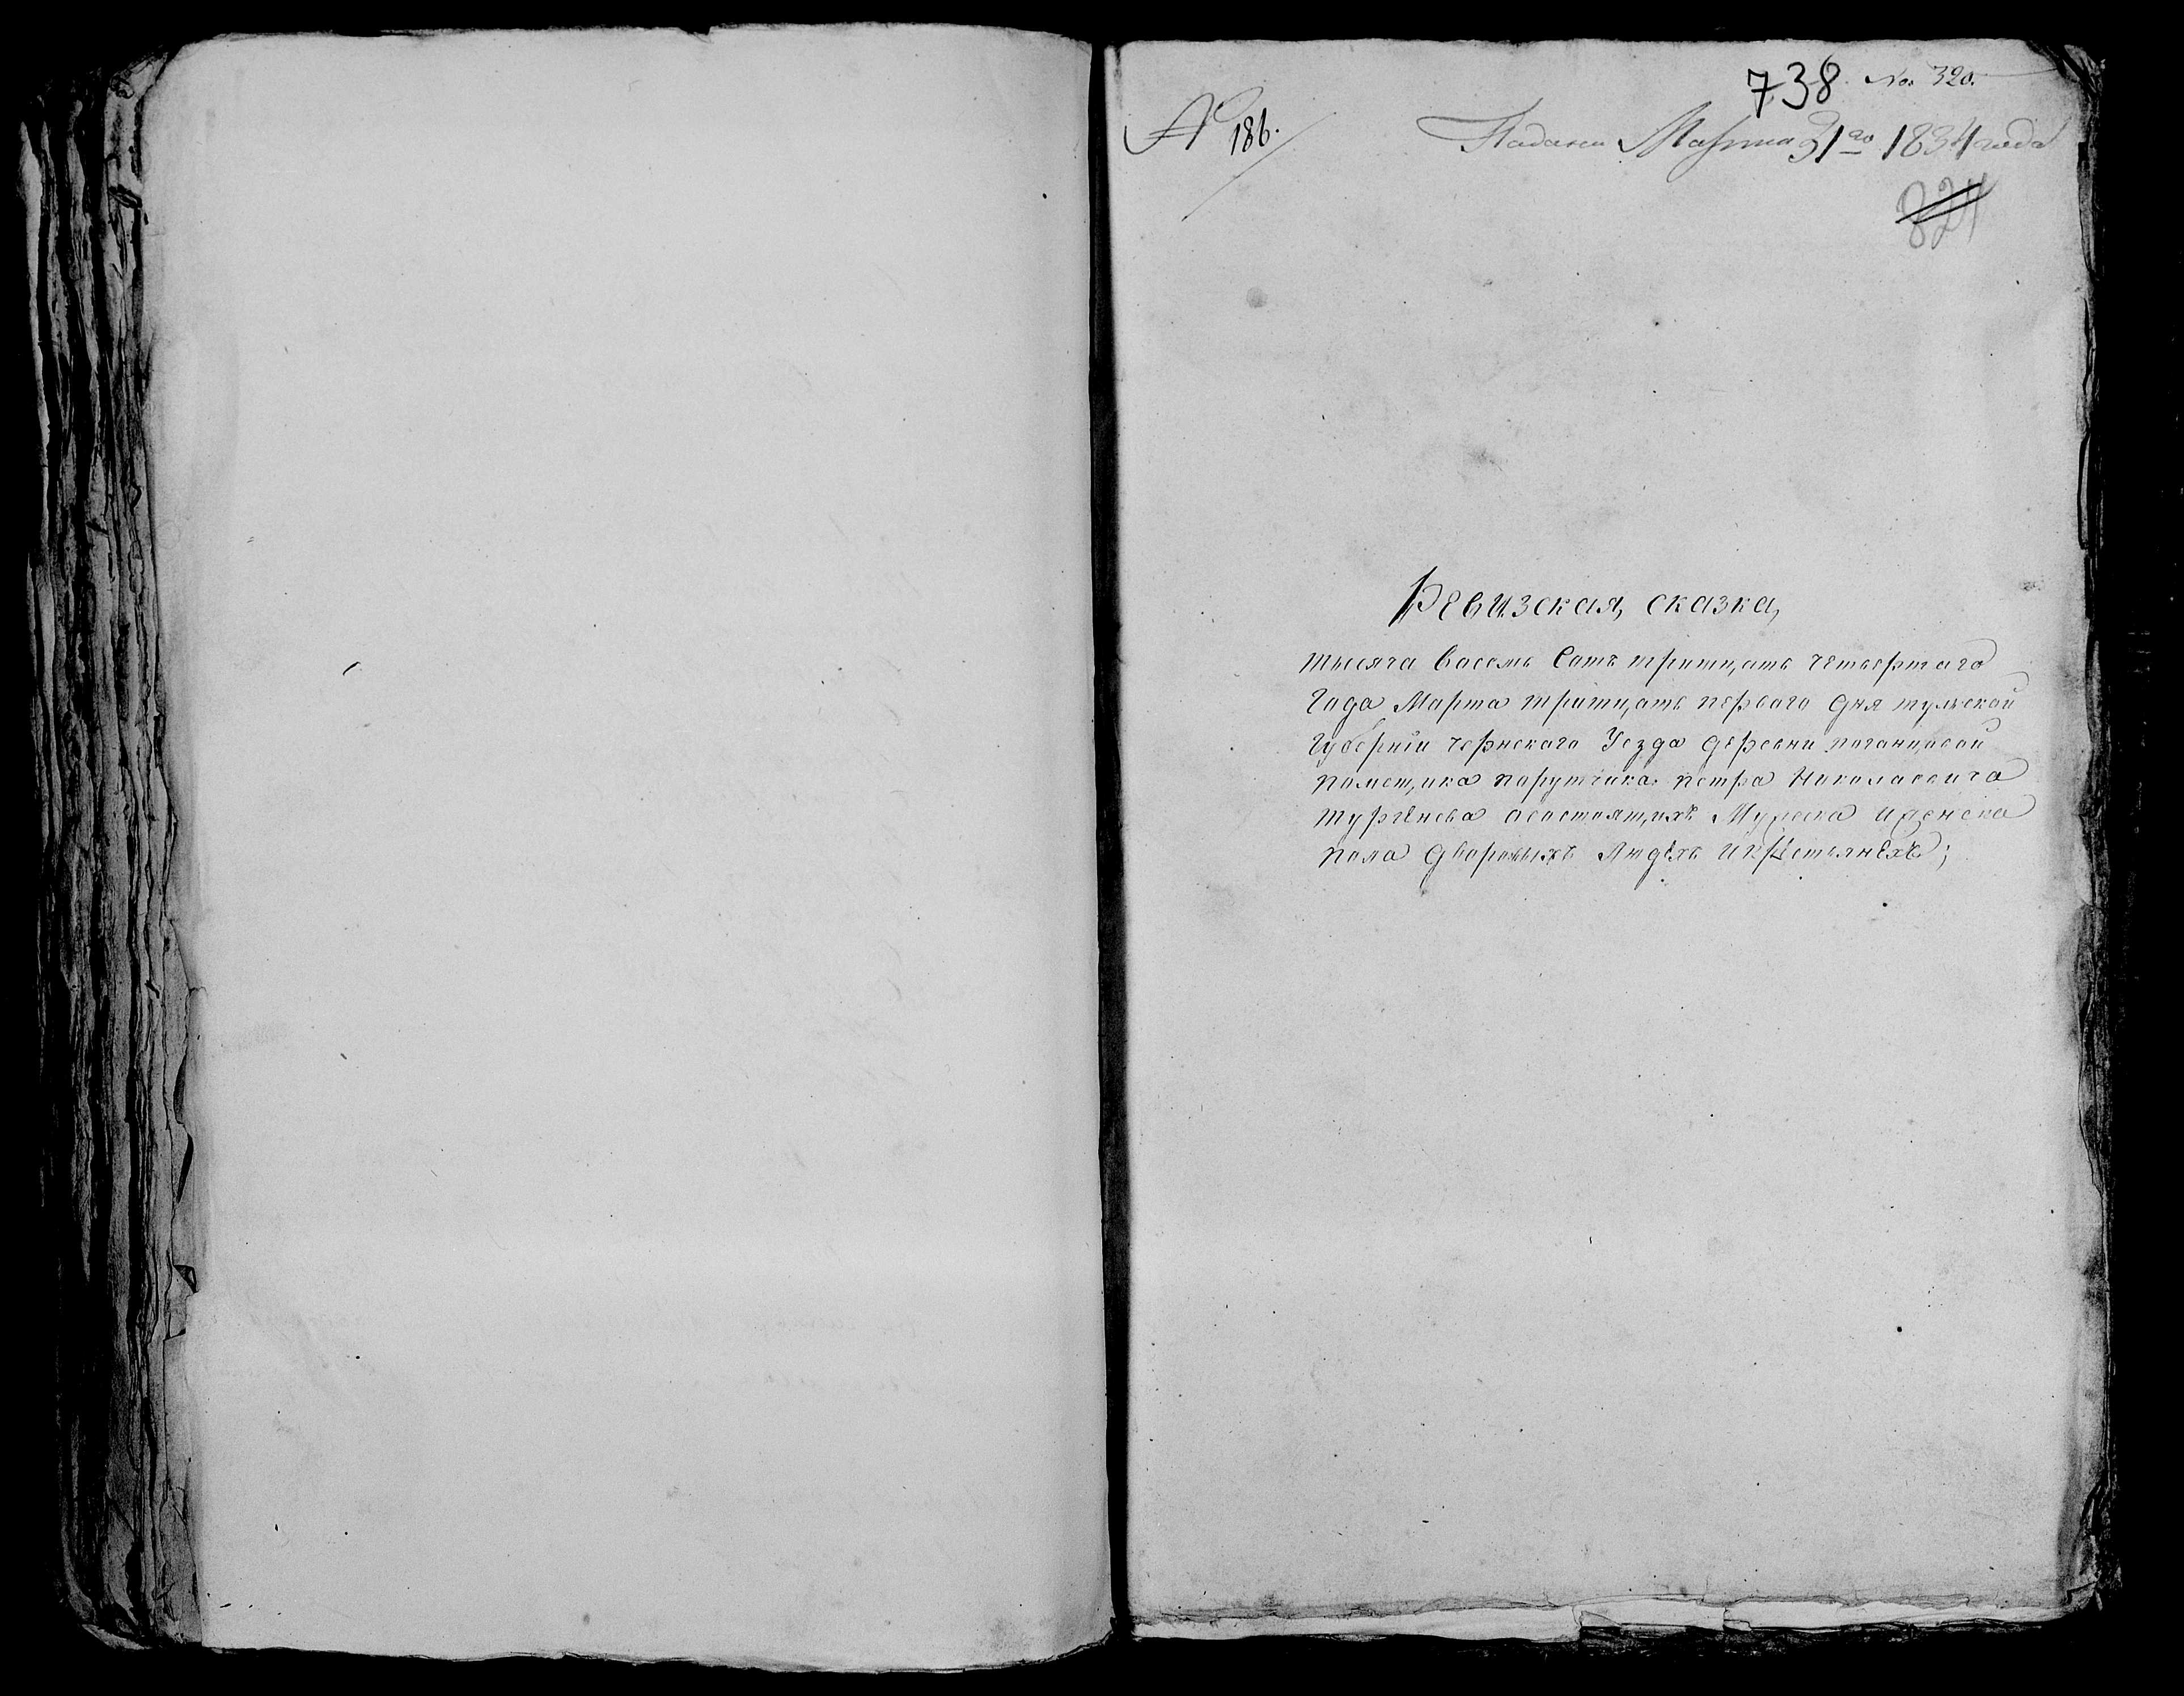 738 No. 320.
№ 186.
Подана Марта 31го 1834 года
824
Ревизская, сказка,
тысяча Восемь Сотъ тритцать четвертаго
Года Марта тритцать перваго дня тульской
Губернiи чернскаго Уезда деревни
помещика порутчика петра Николаевича
тургенева осостоящихъ Мужеска иженска
пола дворовыхъ Людехъ икрестьянехъ;